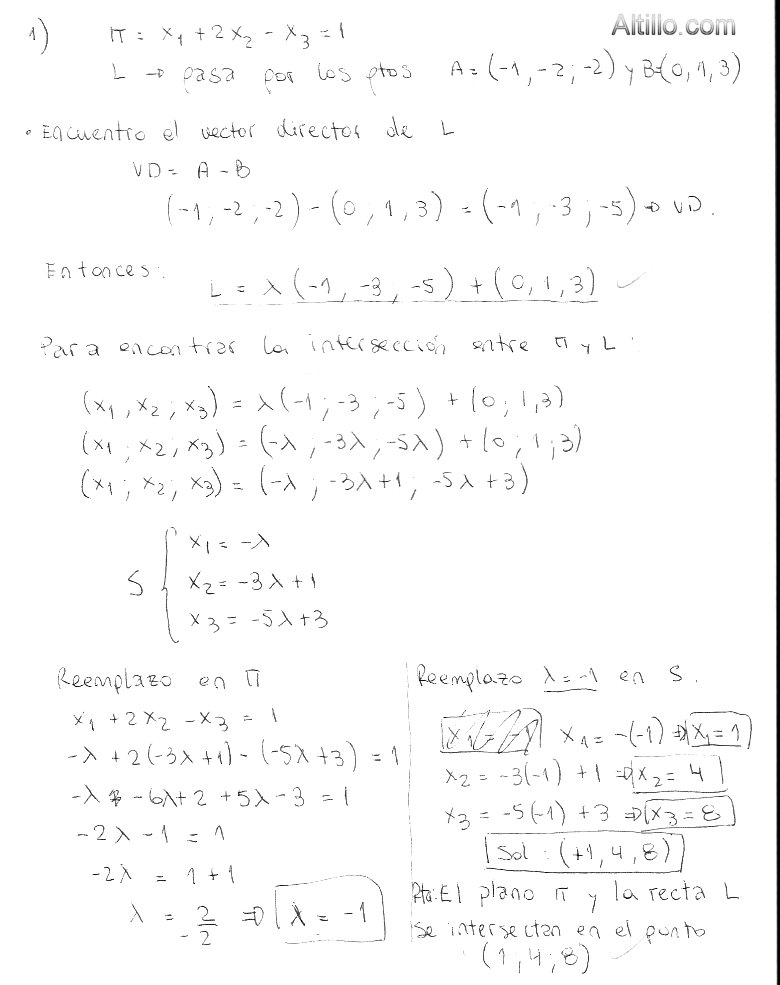 Altillo.com
1) π = x₁ + 2x₂ - x₃ = 1
L → pasa por los ptos A = (-1, -2; -2) y B=(0, 1, 3)
• Encuentro el vector director de L
VD = A - B
(-1; -2; -2) - (0; 1, 3) = (-1; -3; -5) → VD.
Entonces:
L = λ(-1, -3, -5) + (0, 1, 3)
Para encontrar la intersección entre π y L:
(x₁, x₂; x₃) = λ(-1; -3; -5) + (0; 1, 3)
(x₁; x₂, x₃) = (-λ; -3λ, -5λ) + (0; 1; 3)
(x₁; x₂, x₃) = (-λ; -3λ+1; -5λ+3)
S { x₁ = -λ
x₂ = -3λ+1
x₃ = -5λ+3
Reemplazo en π
x₁ + 2x₂ - x₃ = 1
-λ + 2(-3λ+1) - (-5λ+3) = 1
-λ - 6λ + 2 + 5λ - 3 = 1
-2λ - 1 = 1
-2λ = 1 + 1
λ = 2/-2 ⇒ λ = -1
Reemplazo λ = -1 en S.
x₁ = -(-1) ⇒ x₁ = 1
x₂ = -3(-1) + 1 ⇒ x₂ = 4
x₃ = -5(-1) + 3 ⇒ x₃ = 8
Sol: (+1, 4, 8)
Rta: El plano π y la recta L
se intersectan en el punto
(1, 4; 8)